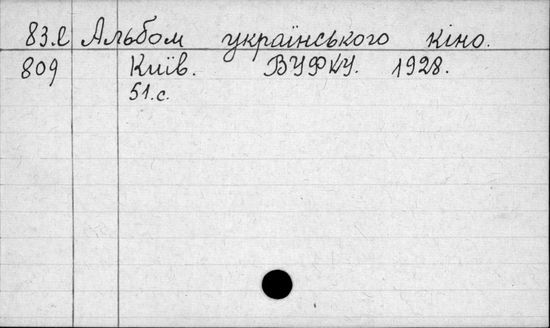 83.2 Альбом українського кіно.
809 Київ. ВУФКУ. 1928.
51.с.